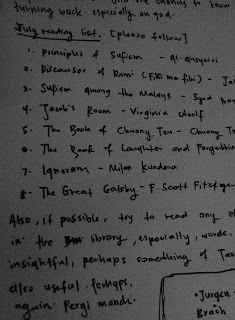 turning back. especially on god.
July reading list. [please follow]
1. principles of Sufism - Al-Qusyairi
2. Discourses of Rumi (Fihi ma fihi) -
3. Sufism among the Malays - Syed
4. Jacob's Room - Virginia Woolf
5. The Book of Chuang Tzu - Chuang T
6. The Book of Laughter and Forgetting
7. Ignorance - Milan Kundera
8- The Great Gatsby - F. Scott Fitzge
Also, if possible, try to read any of
in the library, especially, words,
insightful, perhaps something of Tao
also useful. perhaps,
again. Pergi mandi.
• Jurgen